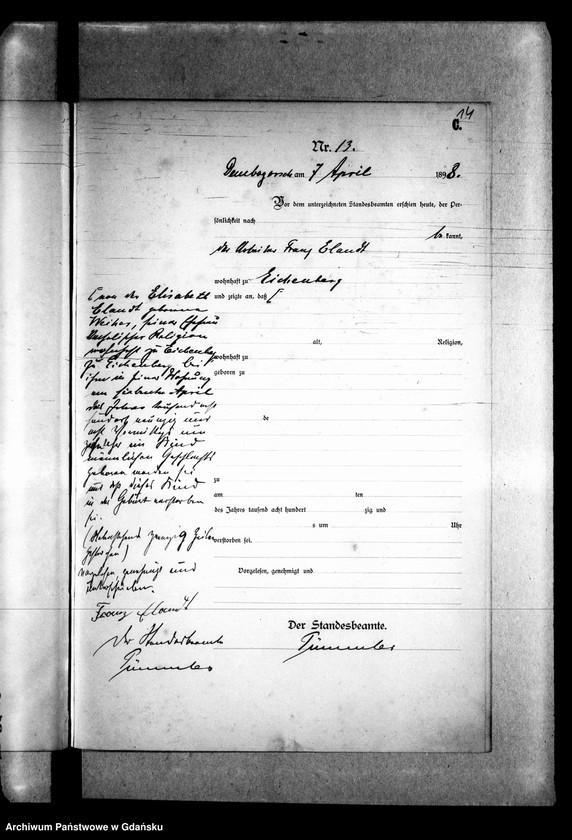 14
C.
Nr. 13.
Dembogorsch am 7 April 1898.
Vor dem unterzeichneten Standesbeamten erschien heute, der Per-
sönlichkeit nach
be kannt,
der Arbeiter Franz Elandt
wohnhaft zu Eichenberg
und zeigte an, daß [
[ von der Elisabeth
Elandt geborene
seiner Ehefrau
katholischer Religion
wohnhaft zu Eichenberg
zu Eichenberg bei
ihm in seiner Wohnung
am siebenten April
des Jahres tausend acht
hundert neunzig und
acht Vormittags um
ein Kind
männlichen Geschlechts
geboren worden sei
und daß dieses Kind
in der Geburt verstorben
sei.
(Nebenstehend zwanzig Zeilen
gestrichen)
Vorgelesen genehmigt und
unterschrieben.
Franz Elandt
Der Standesbeamte
Tümmler
alt, Religion,
wohnhaft zu
geboren zu
de
zu
am ten
des Jahres tausend acht hundert zig und
s um Uhr
verstorben sei.
Vorgelesen, genehmigt und
Der Standesbeamte.
Tümmler
Archiwum Państwowe w Gdańsku